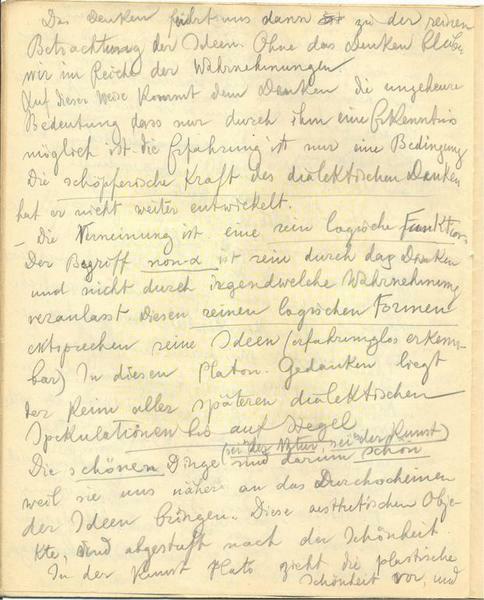 Das Denken führt uns dann zu der reinen
Betrachtung der Ideen. Ohne das Denken bleiben
wir im Reiche der Wahrnehmungen.
Auf dieser Weise kommt dem Denken die ungeheure
Bedeutung dass nur durch ihm eine Erkenntnis
möglich ist. die Erfahrung ist nur eine Bedingung
Die schöpferische Kraft des dialektischen Denken
hat er nicht weiter entwickelt.
– Die Verneinung ist eine rein logische Funktion.
Der Begriff non-a ist rein durch das Denken
und nicht durch irgendwelche Wahrnehmung
veranlasst Diesen reinen logischen Formen
entsprechen seine Ideen (erfahrungslos erkenn-
bar) In diesen Platon. Gedanken liegt
der Keim aller späteren dialektischen
Spekulationen bis auf Hegel
(sei es der Natur, sei es der Kunst)
Die schönen Dinge sind darum schön
weil sie uns näher an das Durchscheinen
der Ideen bringen. Diese aesthetischen Obje-
kte, sind abgestuft nach der Schönheit.
In der Kunst Plato zieht die plastische
Schönheit vor, und